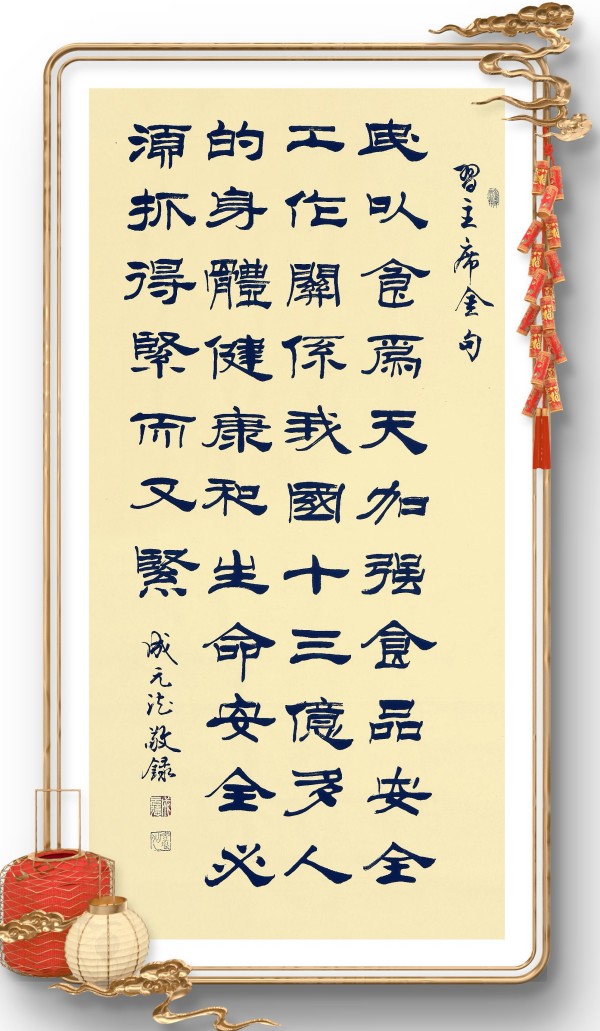 習主席金句
民以食爲天加强食品安全
工作關係我國十三億多人
的身體健康和生命安全必
須抓得緊而又緊
成元法敬録